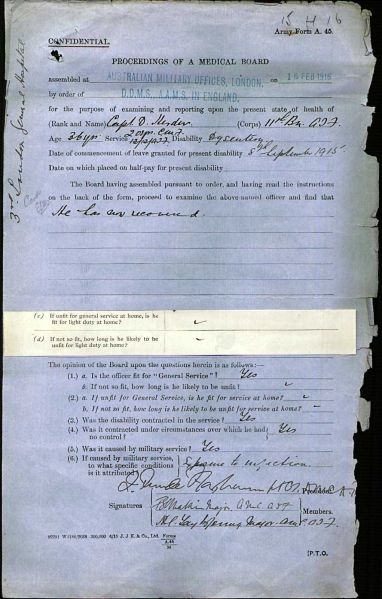 15 4 16
CONFIDENTIAL.
Army Form A. 45.
PROCEEDINGS OF A MEDICAL BOARD
assembled at AUSTRALIAN MILITARY OFFICES, LONDON. on 16 FEB 1916
by order of D.D.M.S. A.A.M.S. IN ENGLAND.
for the purpose of examining and reporting upon the present state of health of
(Rank and Name) Capt D. (Corps) 11th Bn. A.I.F
Age 36 yrs Service Disability Dysentery
Date of commencement of leave granted for present disability 5th September 1915
Date on which placed on half-pay for present disability
The Board having assembled pursuant to order, and having read the instructions
on the back of the form, proceed to examine the above-named officer and find that
He has now recovered.
3rd London General Hospital
(c) If unfit for general service at home, is he fit for light duty at home?
(d) If not so fit, how long is he likely to be unfit for light duty at home?
The opinion of the Board upon the questions herein is as follows:—
(1.) a. Is the officer fit for "General Service"? Yes
b. If not so fit, how long is he likely to be unfit?
(2.) a. If unfit for General Service, is he fit for service at home?
b. If not so fit, how long is he likely to be unfit for service at home?
(3.) Was the disability contracted in the service? Yes
(4.) Was it contracted under circumstances over which he had no control? Yes
(5.) Was it caused by military service? Yes
(6.) If caused by military service, to what specific conditions is it attributed? Exposure to infection
President
Signatures
Major A.M.C. A.I.F
Members.
Major A.M.C. A.I.F.
[P.T.O.